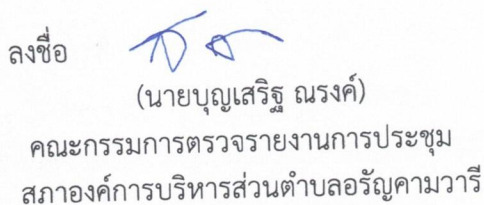 ลงชื่อ
(นายบุญเสริฐ ณรงค์)
คณะกรรมการตรวจรายงานการประชุม
สภาองค์การบริหารส่วนตำบลอรัญคามวารี